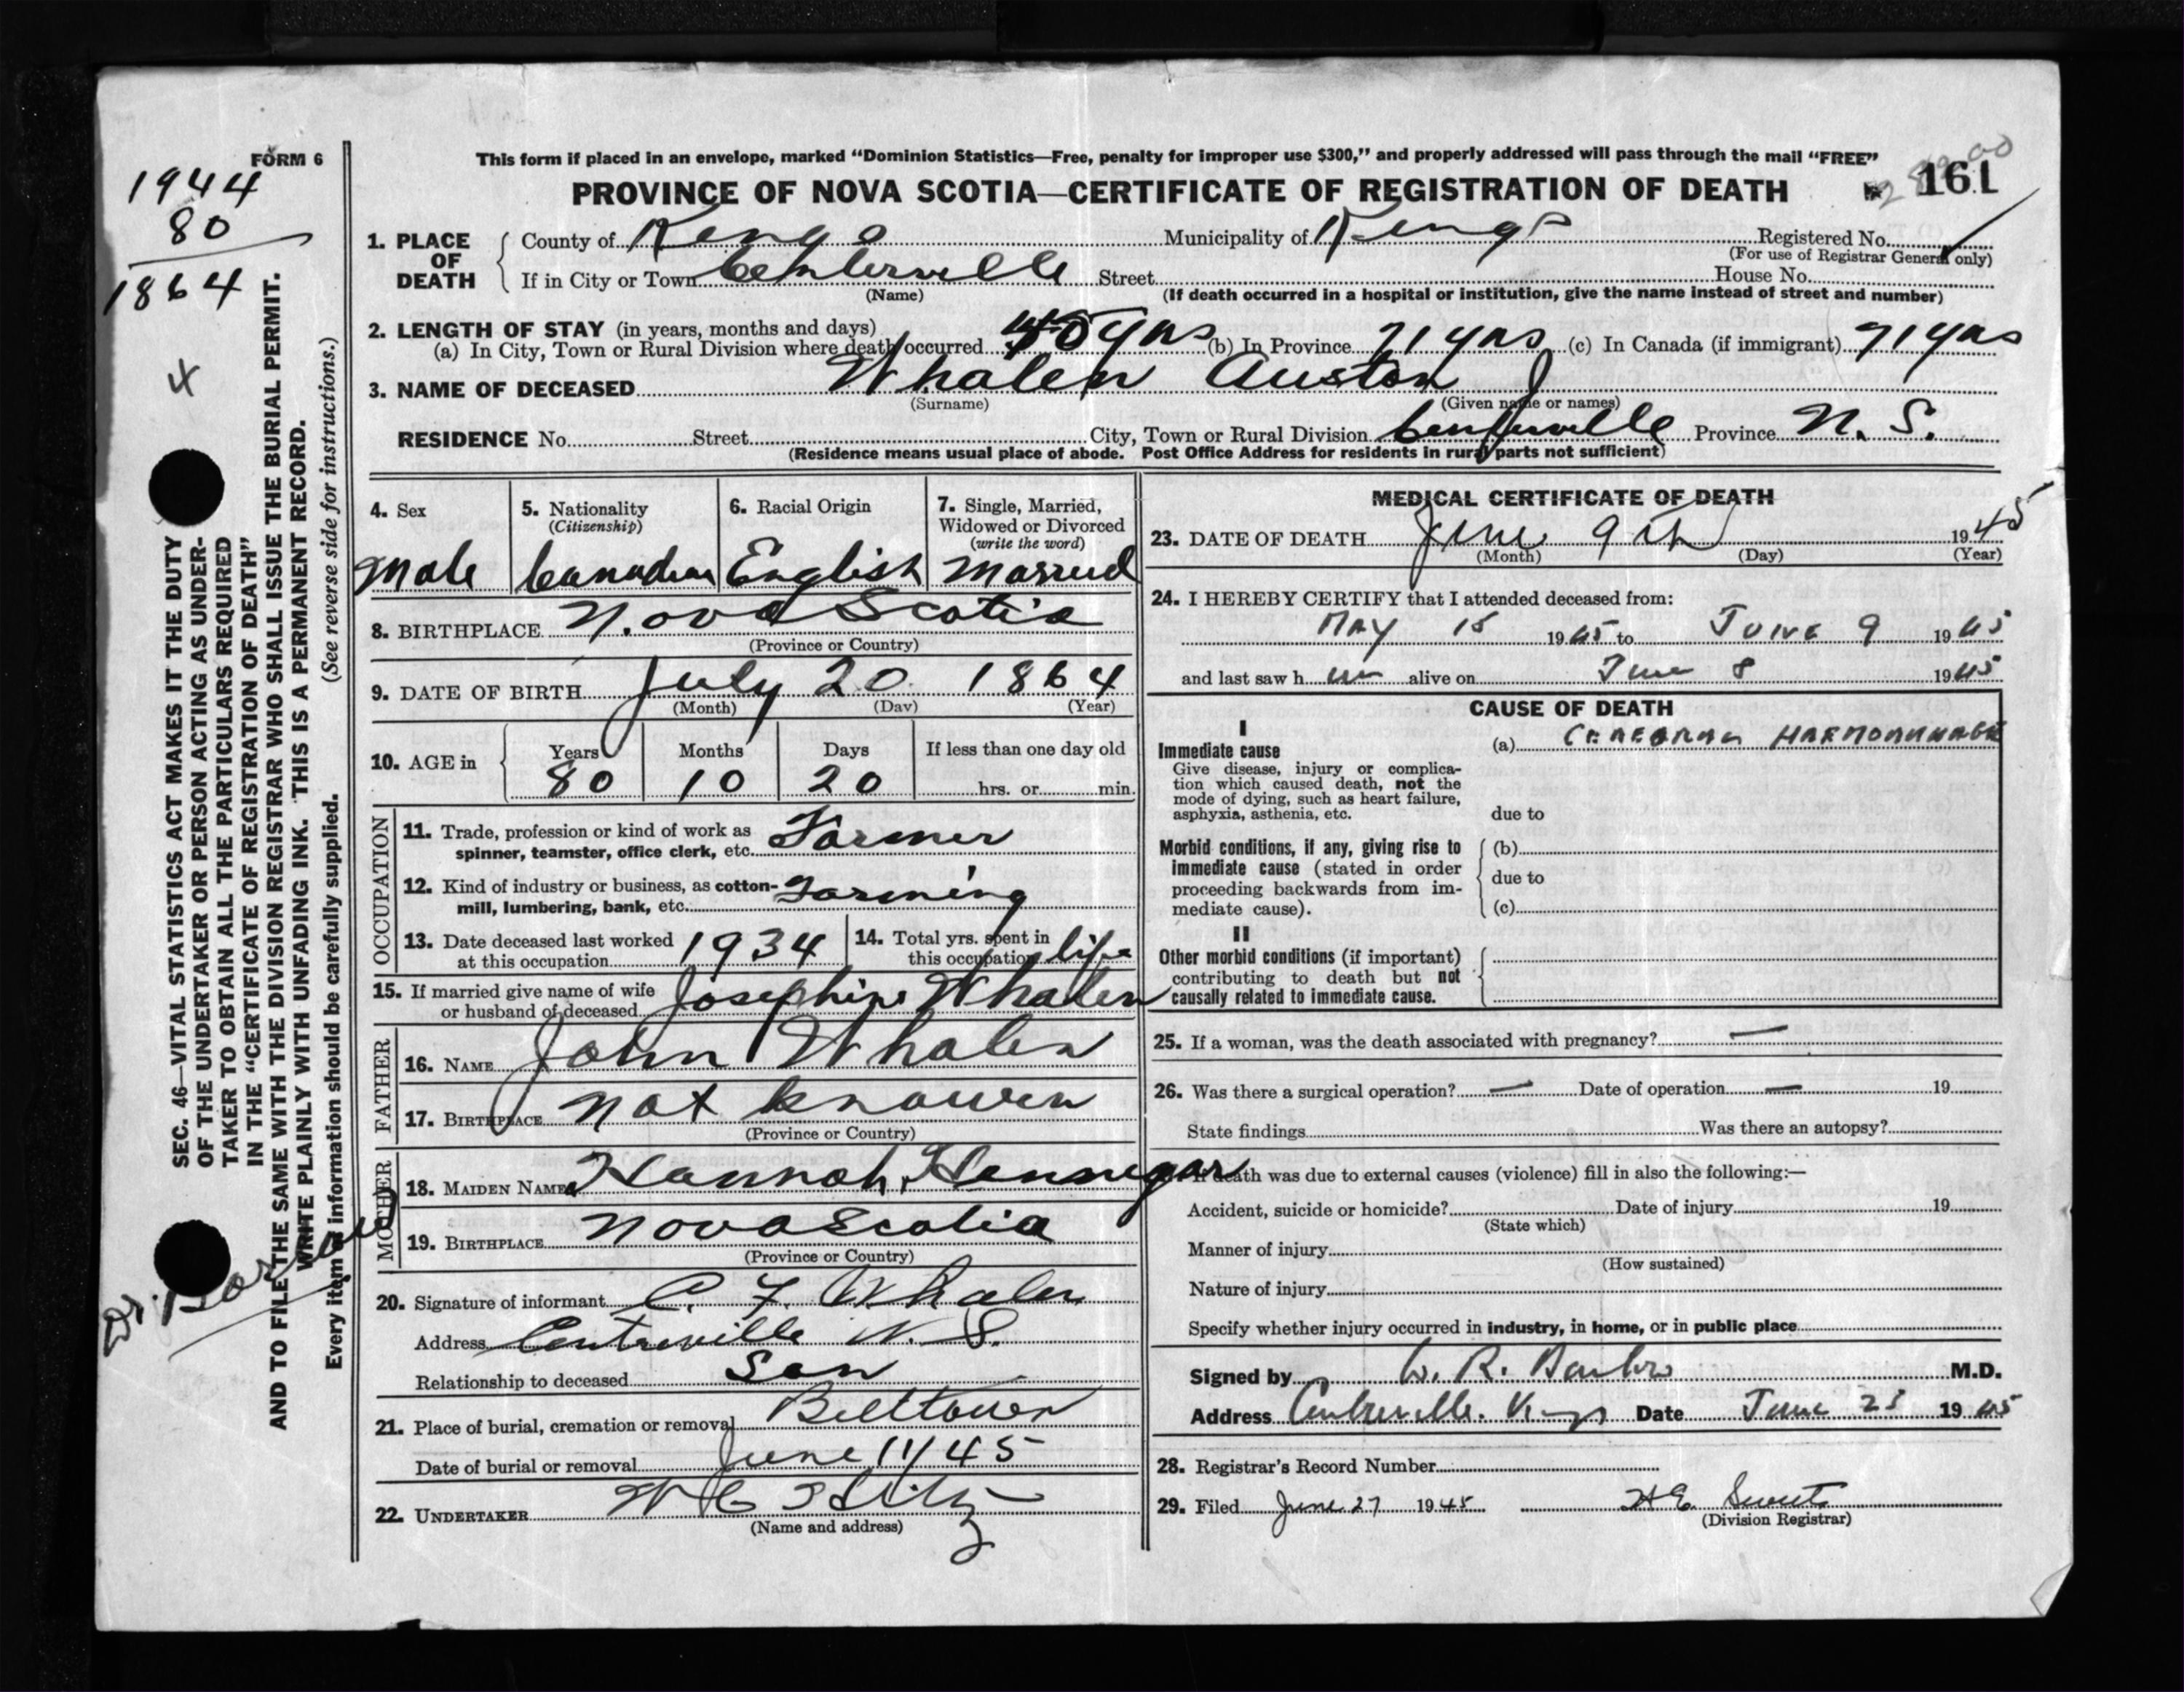 FORM 6
1944
80
1864
4
SEC. 46—VITAL STATISTICS ACT MAKES IT THE DUTY
OF THE UNDERTAKER OR PERSON ACTING AS UNDER-
TAKER TO OBTAIN ALL THE PARTICULARS REQUIRED
IN THE "CERTIFICATE OF REGISTRATION OF DEATH"
AND TO FILE THE SAME WITH THE DIVISION REGISTRAR WHO SHALL ISSUE THE BURIAL PERMIT.
WRITE PLAINLY WITH UNFADING INK. THIS IS A PERMANENT RECORD.
Every item of information should be carefully supplied. (See reverse side for instructions.)
Dr.
This form if placed in an envelope, marked "Dominion Statistics—Free, penalty for improper use $300," and properly addressed will pass through the mail "FREE"
PROVINCE OF NOVA SCOTIA—CERTIFICATE OF REGISTRATION OF DEATH 161
1. PLACE OF DEATH County of Kings Municipality of Kings Registered No.
(For use of Registrar General only)
If in City or Town Centerville Street House No.
(Name) (If death occurred in a hospital or institution, give the name instead of street and number)
2. LENGTH OF STAY (in years, months and days)
(a) In City, Town or Rural Division where death occurred yrs (b) In Province 71 yrs (c) In Canada (if immigrant) 71 yrs
3. NAME OF DECEASED Whalen Auston J
(Surname) (Given name or names)
RESIDENCE No. Street City, Town or Rural Division Centerville Province N. S.
(Residence means usual place of abode. Post Office Address for residents in rural parts not sufficient)
4. Sex 5. Nationality (Citizenship) 6. Racial Origin 7. Single, Married, Widowed or Divorced (write the word)
Male Canadian English Married
8. BIRTHPLACE Nova Scotia
(Province or Country)
9. DATE OF BIRTH July 20 1864
(Month) (Day) (Year)
10. AGE in Years Months Days If less than one day old
80 10 20 hrs. or min.
OCCUPATION
11. Trade, profession or kind of work as Farmer
spinner, teamster, office clerk, etc.
12. Kind of industry or business, as cotton- Farming
mill, lumbering, bank, etc.
13. Date deceased last worked at this occupation 1934 14. Total yrs. spent in this occupation life
15. If married give name of wife or husband of deceased Josephine Whalen
FATHER
16. NAME John Whalen
17. BIRTHPLACE not known
(Province or Country)
MOTHER
18. MAIDEN NAME Hannah Hennegar
19. BIRTHPLACE Nova Scotia
(Province or Country)
20. Signature of informant C. F. Whalen
Address Centreville N. S.
Relationship to deceased Son
21. Place of burial, cremation or removal Billtown
Date of burial or removal June 11/45
22. UNDERTAKER
(Name and address)
MEDICAL CERTIFICATE OF DEATH
23. DATE OF DEATH June 9th 1945
(Month) (Day) (Year)
24. I HEREBY CERTIFY that I attended deceased from:
MAY 15 1945 to JUNE 9 1945
and last saw him alive on June 8 1945
CAUSE OF DEATH
I
Immediate cause (a) CEREBRAL HAEMORRHAGE
Give disease, injury or complica-
tion which caused death, not the
mode of dying, such as heart failure,
asphyxia, asthenia, etc. due to
Morbid conditions, if any, giving rise to (b)
immediate cause (stated in order due to
proceeding backwards from im-
mediate cause). (c)
II
Other morbid conditions (if important)
contributing to death but not
causally related to immediate cause.
25. If a woman, was the death associated with pregnancy? —
26. Was there a surgical operation? — Date of operation — 19
State findings Was there an autopsy?
If death was due to external causes (violence) fill in also the following:—
Accident, suicide or homicide? Date of injury 19
(State which)
Manner of injury
(How sustained)
Nature of injury
Specify whether injury occurred in industry, in home, or in public place
Signed by W. R. M.D.
Address Centreville. Kings Date June 25 1945
28. Registrar's Record Number
29. Filed June 27 1945
(Division Registrar)